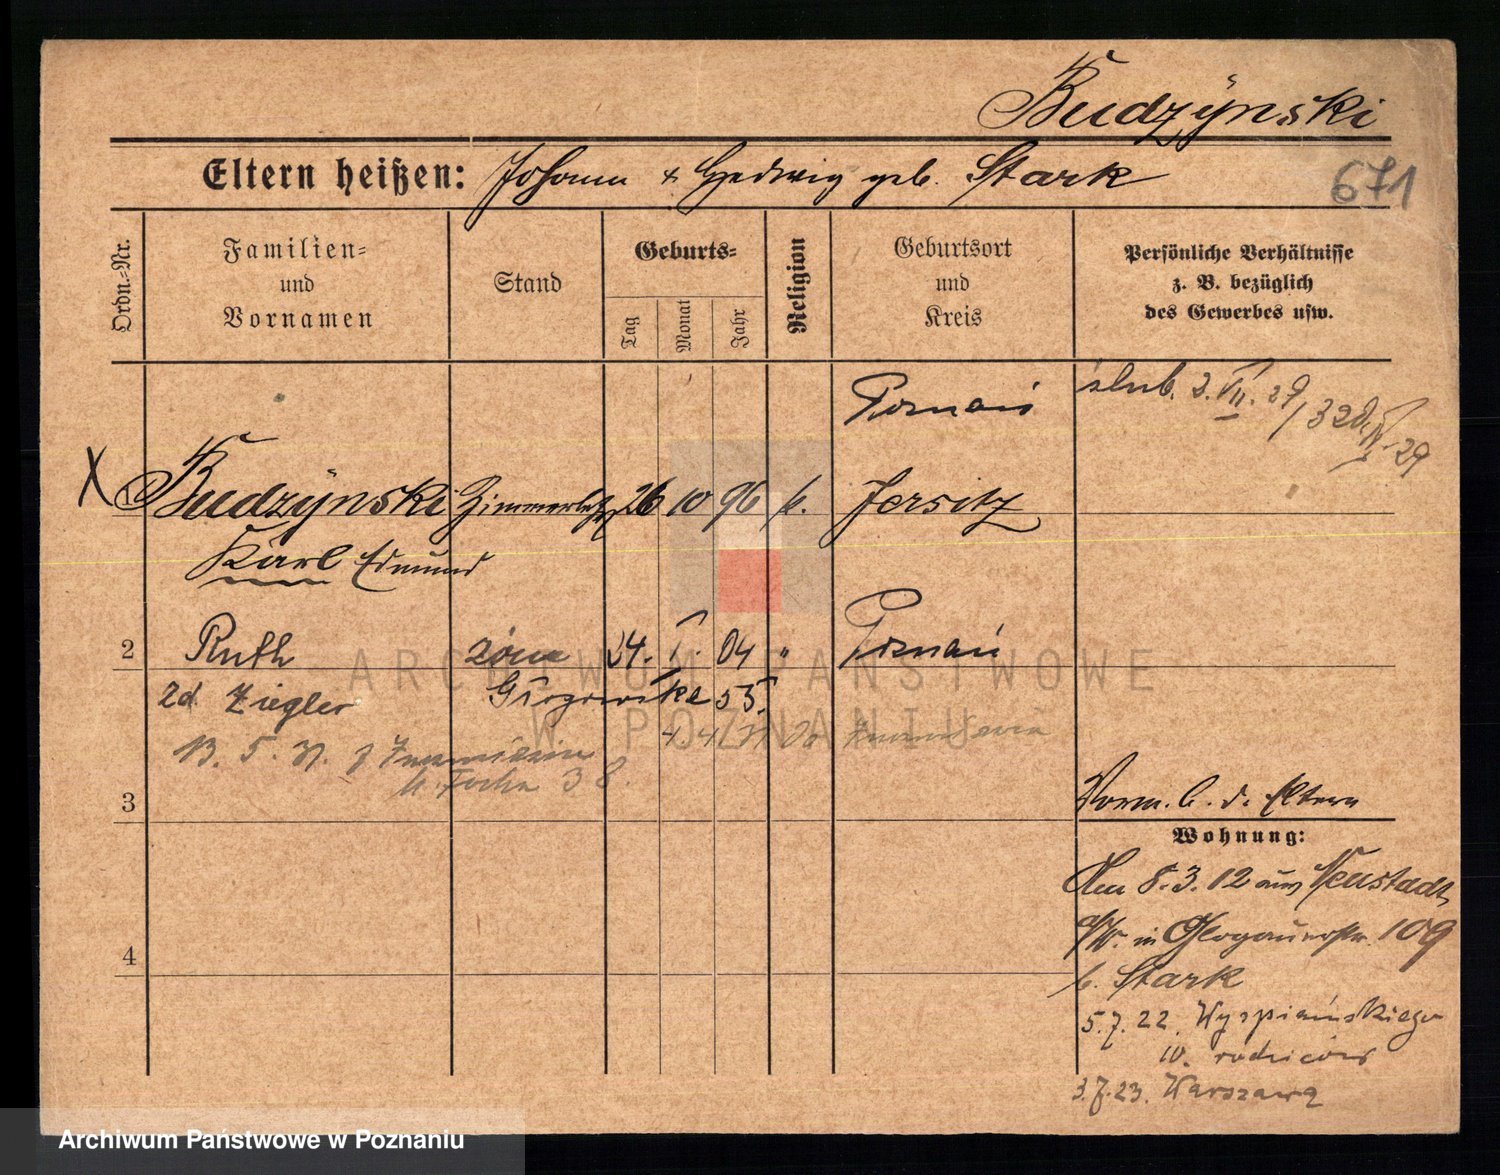 Budzÿnski
Eltern heißen: Johann & Hedwig geb. Stark
671
Ordn.-Nr.
Familien-
und
Vornamen
Stand
Geburts-
Tag
Monat
Jahr
Religion
Geburtsort
und
Kreis
Persönliche Verhältnisse
z. B. bezüglich
des Gewerbes usw.
Poznań
ślub. 2. VII. 29
X 1 Budzÿnski 26 10 96 k. Jersitz
Karl Edmund
2 Ruth żona 24. I. 04 " Poznań
zd Ziegler 55.
ARCHIWUM PAŃSTWOWE
W POZNANIU
3
38.
Vorm. b. d. Eltern
Wohnung:
Am 8.3.12 aus Neustadt
a/W. in Glogauerstr. 109
b. Stark
5.7.22. Wyspiańskiego
10. rodziców
3.7.23. Warszawa
4
Archiwum Państwowe w Poznaniu